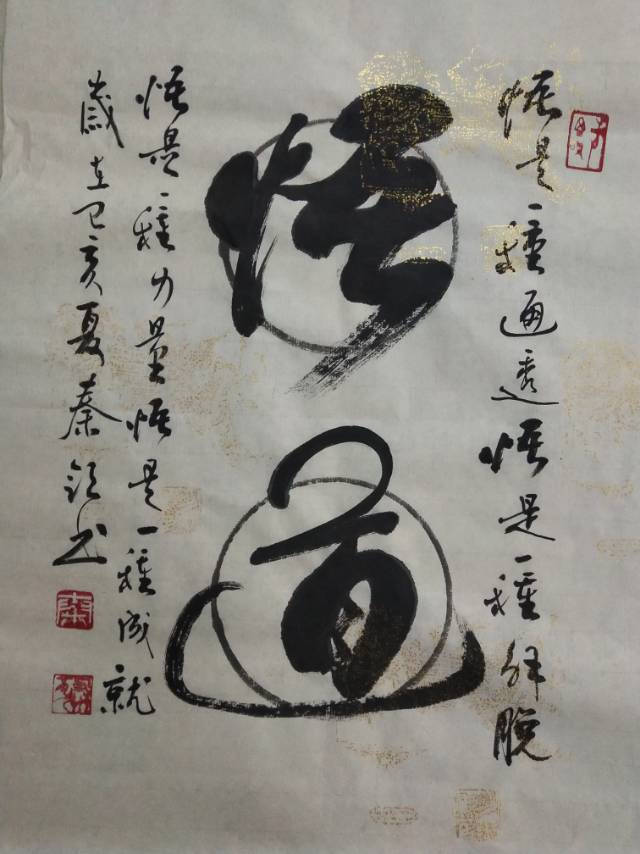 悟道
悟是一種通透悟是一種解脫
悟是一種力量悟是一種成就
歲在己亥夏秦領书